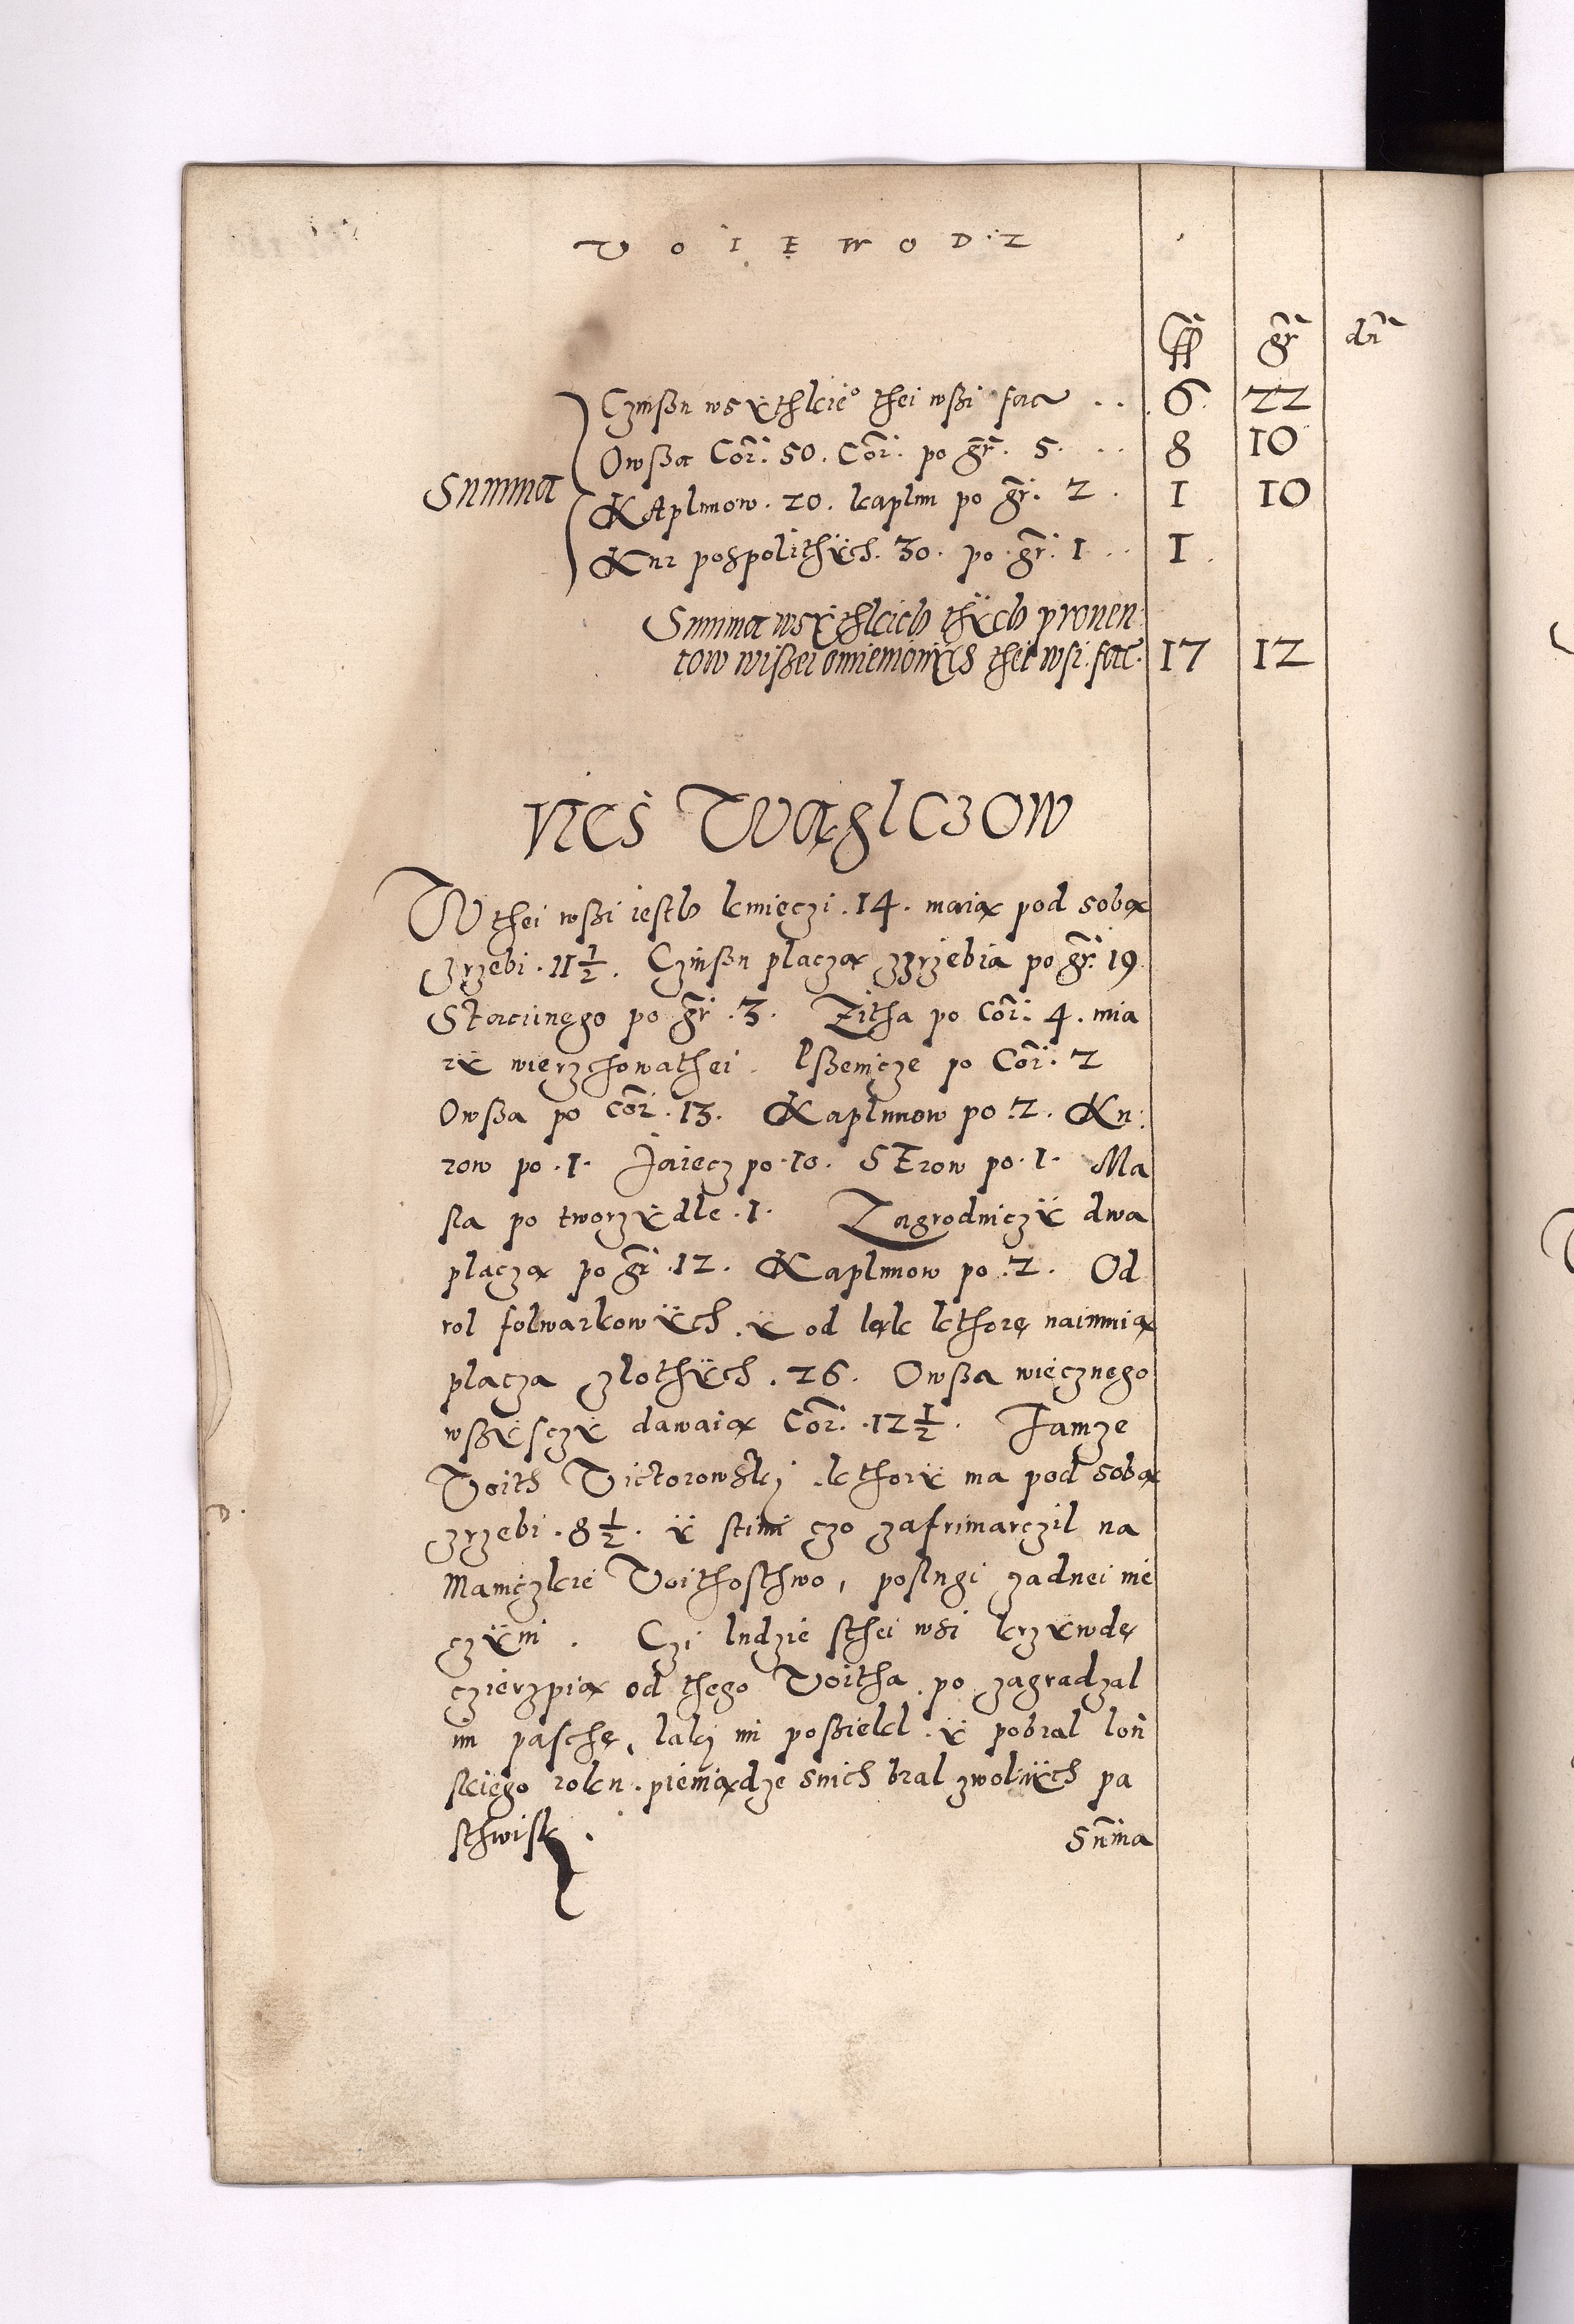 VOIEWODZ
ff gr dn
Czinßu wsÿthkie° thei wßi fac 6 22
Owßa Cor: 50. Cor: po gr. 5. 8 10
Summa KAplunow. 20. kaplun po gr. 2. 1 10
Kur pospolithÿch. 30. po gr: 1 1
Summa wsÿthkich thÿch prouen
tow wißei omienionÿch thei wsi. fac. 17 12
VIES WąglCZOW
W thei wßi iesth kmięczi .14. maią pod sobą
zrzebi .11 1/2. Czinßu płaczą zzrzebia po gr. 19
Staciinego po gr .3. Zitha po Cor: 4. mia
rÿ wierzchowathei. Pßeniçze po Cor: 2
Owßa po Cor. 13. Kaplunow po .2. Ku:
row po .1. Jaiecz po .10. SErow po .1. Ma
sla po tworzÿdle .1. Zagrodniczÿ dwa
plączą po gr .12. Kaplunow po .2. Od
rol folwarkowÿch .ÿ od ląk kthorę naimuią
placza zlothÿch .26. Owßa wiecznego
wßÿsczÿ dawaią Cor. .12 1/2. Tamze
Voith Victorowski kthorÿ ma pod sobą
zrzebi .8 1/2. ÿ stimi czo zafrimarczil na
Mamczkie Voithosthwo, poslugi zadnei nie
czÿni. Czi ludzie sthei wsi krzÿwdę
czierzpią od thego Voitha po zagradzal
im paschę, laki im poßiekl .ÿ pobral lon
skiego roku. pieniądze snich bral zwolnÿch pa
sthwisk.
Suma